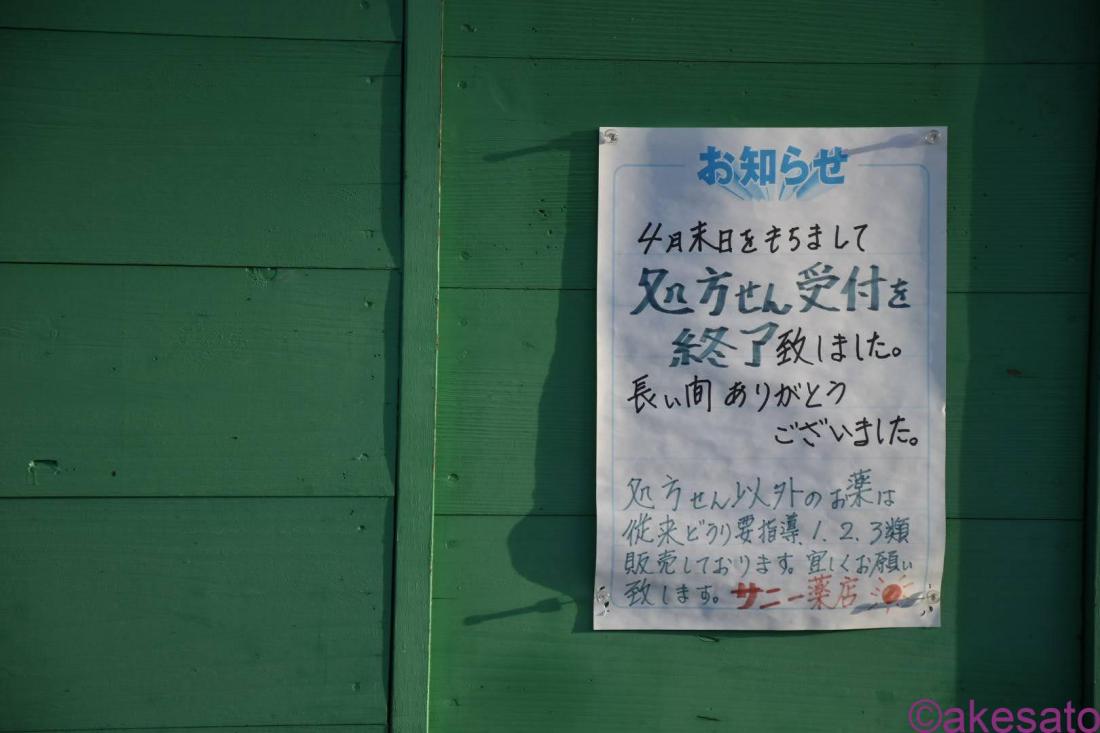 お知らせ
4月末日をもちまして
処方せん受付を
終了致しました。
長い間 ありがとう
ございました。
処方せん以外のお薬は
従来どうり要指導、1.2.3類
販売しております。宜しくお願い
致します。サニー薬店
©akesato